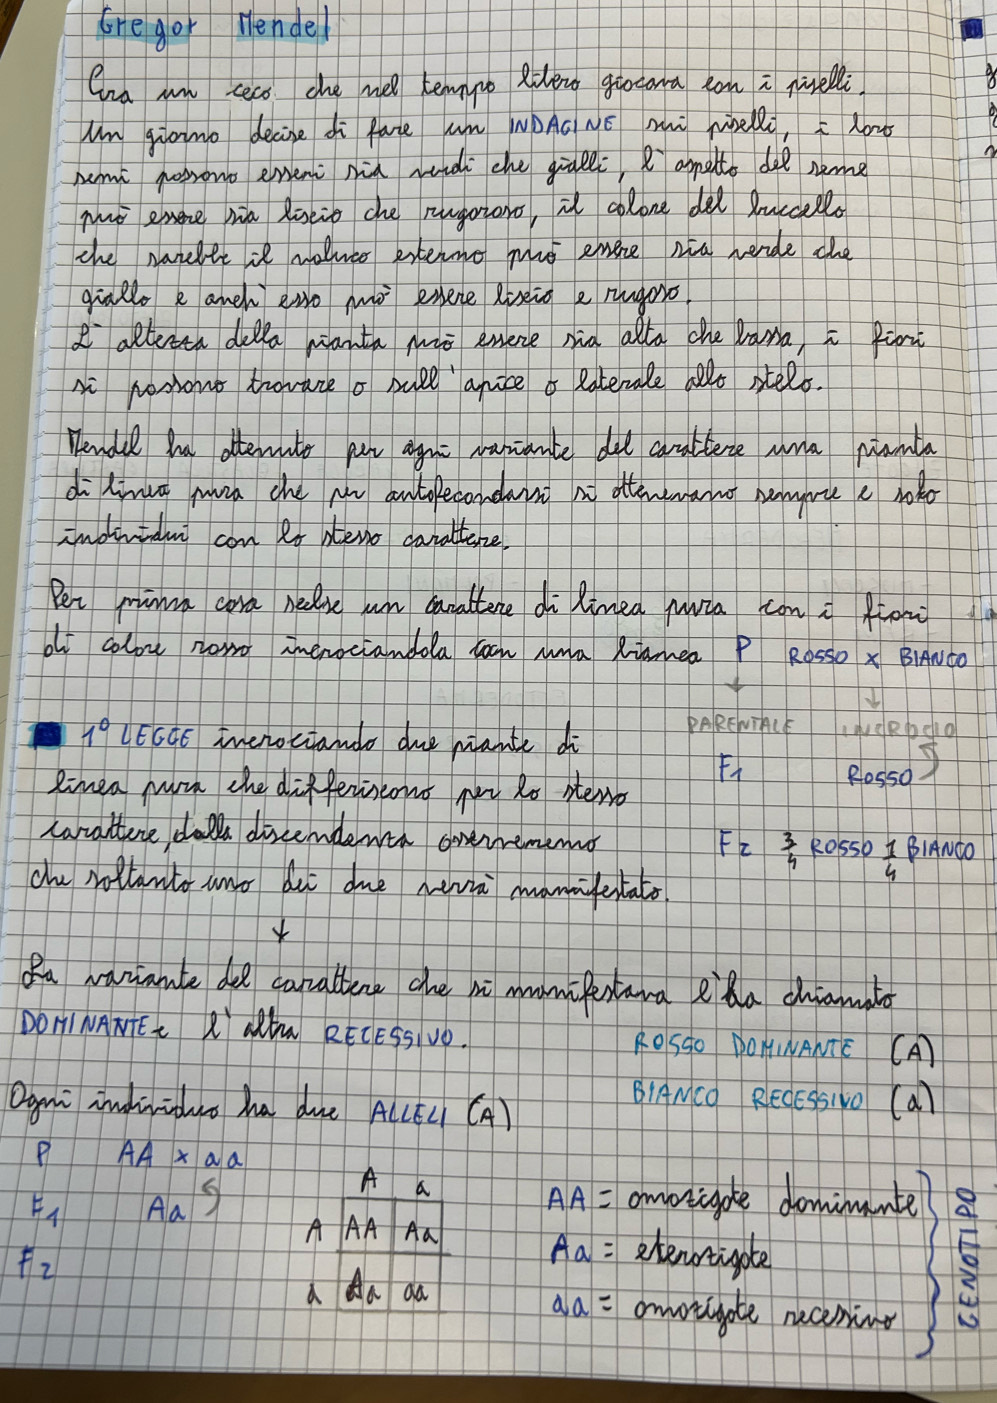 Gregor Mendel
Era un ceco che nel temppo libero giocava con i piselli.
Un giorno decise di fare un INDAGINE sui piselli, i loro
semi possono esseri sia verdi che gialli, l'aspetto del seme
può essere sia liscio che rugoroso, il colore del buccello
che sarebbe il involucro esterno può essere sia verde che
giallo e anch'esso può essere liscio e rugoso.
L'altezza della pianta può essere sia alta che bassa, i fiori
si possono trovare o sull'apice o laterale allo stelo.
Mendel ha ottenuto per ogni variante del carattere una pianta
di linea pura che per autofecondarsi si ottenevano sempre e solo
individui con lo stesso carattere.
Per prima cosa scelse un carattere di linea pura con i fiori
di colore rosso incrociandola con una bianca P ROSSO x BIANCO
↓ ↓
PARENTALE INCROCIO
1° LEGGE incrociando due piante di
F1 ROSSO
linea pura che differiscono per lo stesso
carattere, dalla discendenza osserveremo
F2 3/4 ROSSO 1/4 BIANCO
che soltanto uno dei due verrà manifestato.
↓
La variante del carattere che si manifestava l'ha chiamato
DOMINANTE e l'altra RECESSIVO.
ROSSO DOMINANTE (A)
BIANCO RECESSIVO (a)
Ogni individuo ha due ALLELI (A)
P AA x aa
F1 Aa
F2
A a
A AA Aa
a Aa aa
AA = omozigote dominante
Aa = eterozigote
aa = omozigote recessivo
GENOTIPO